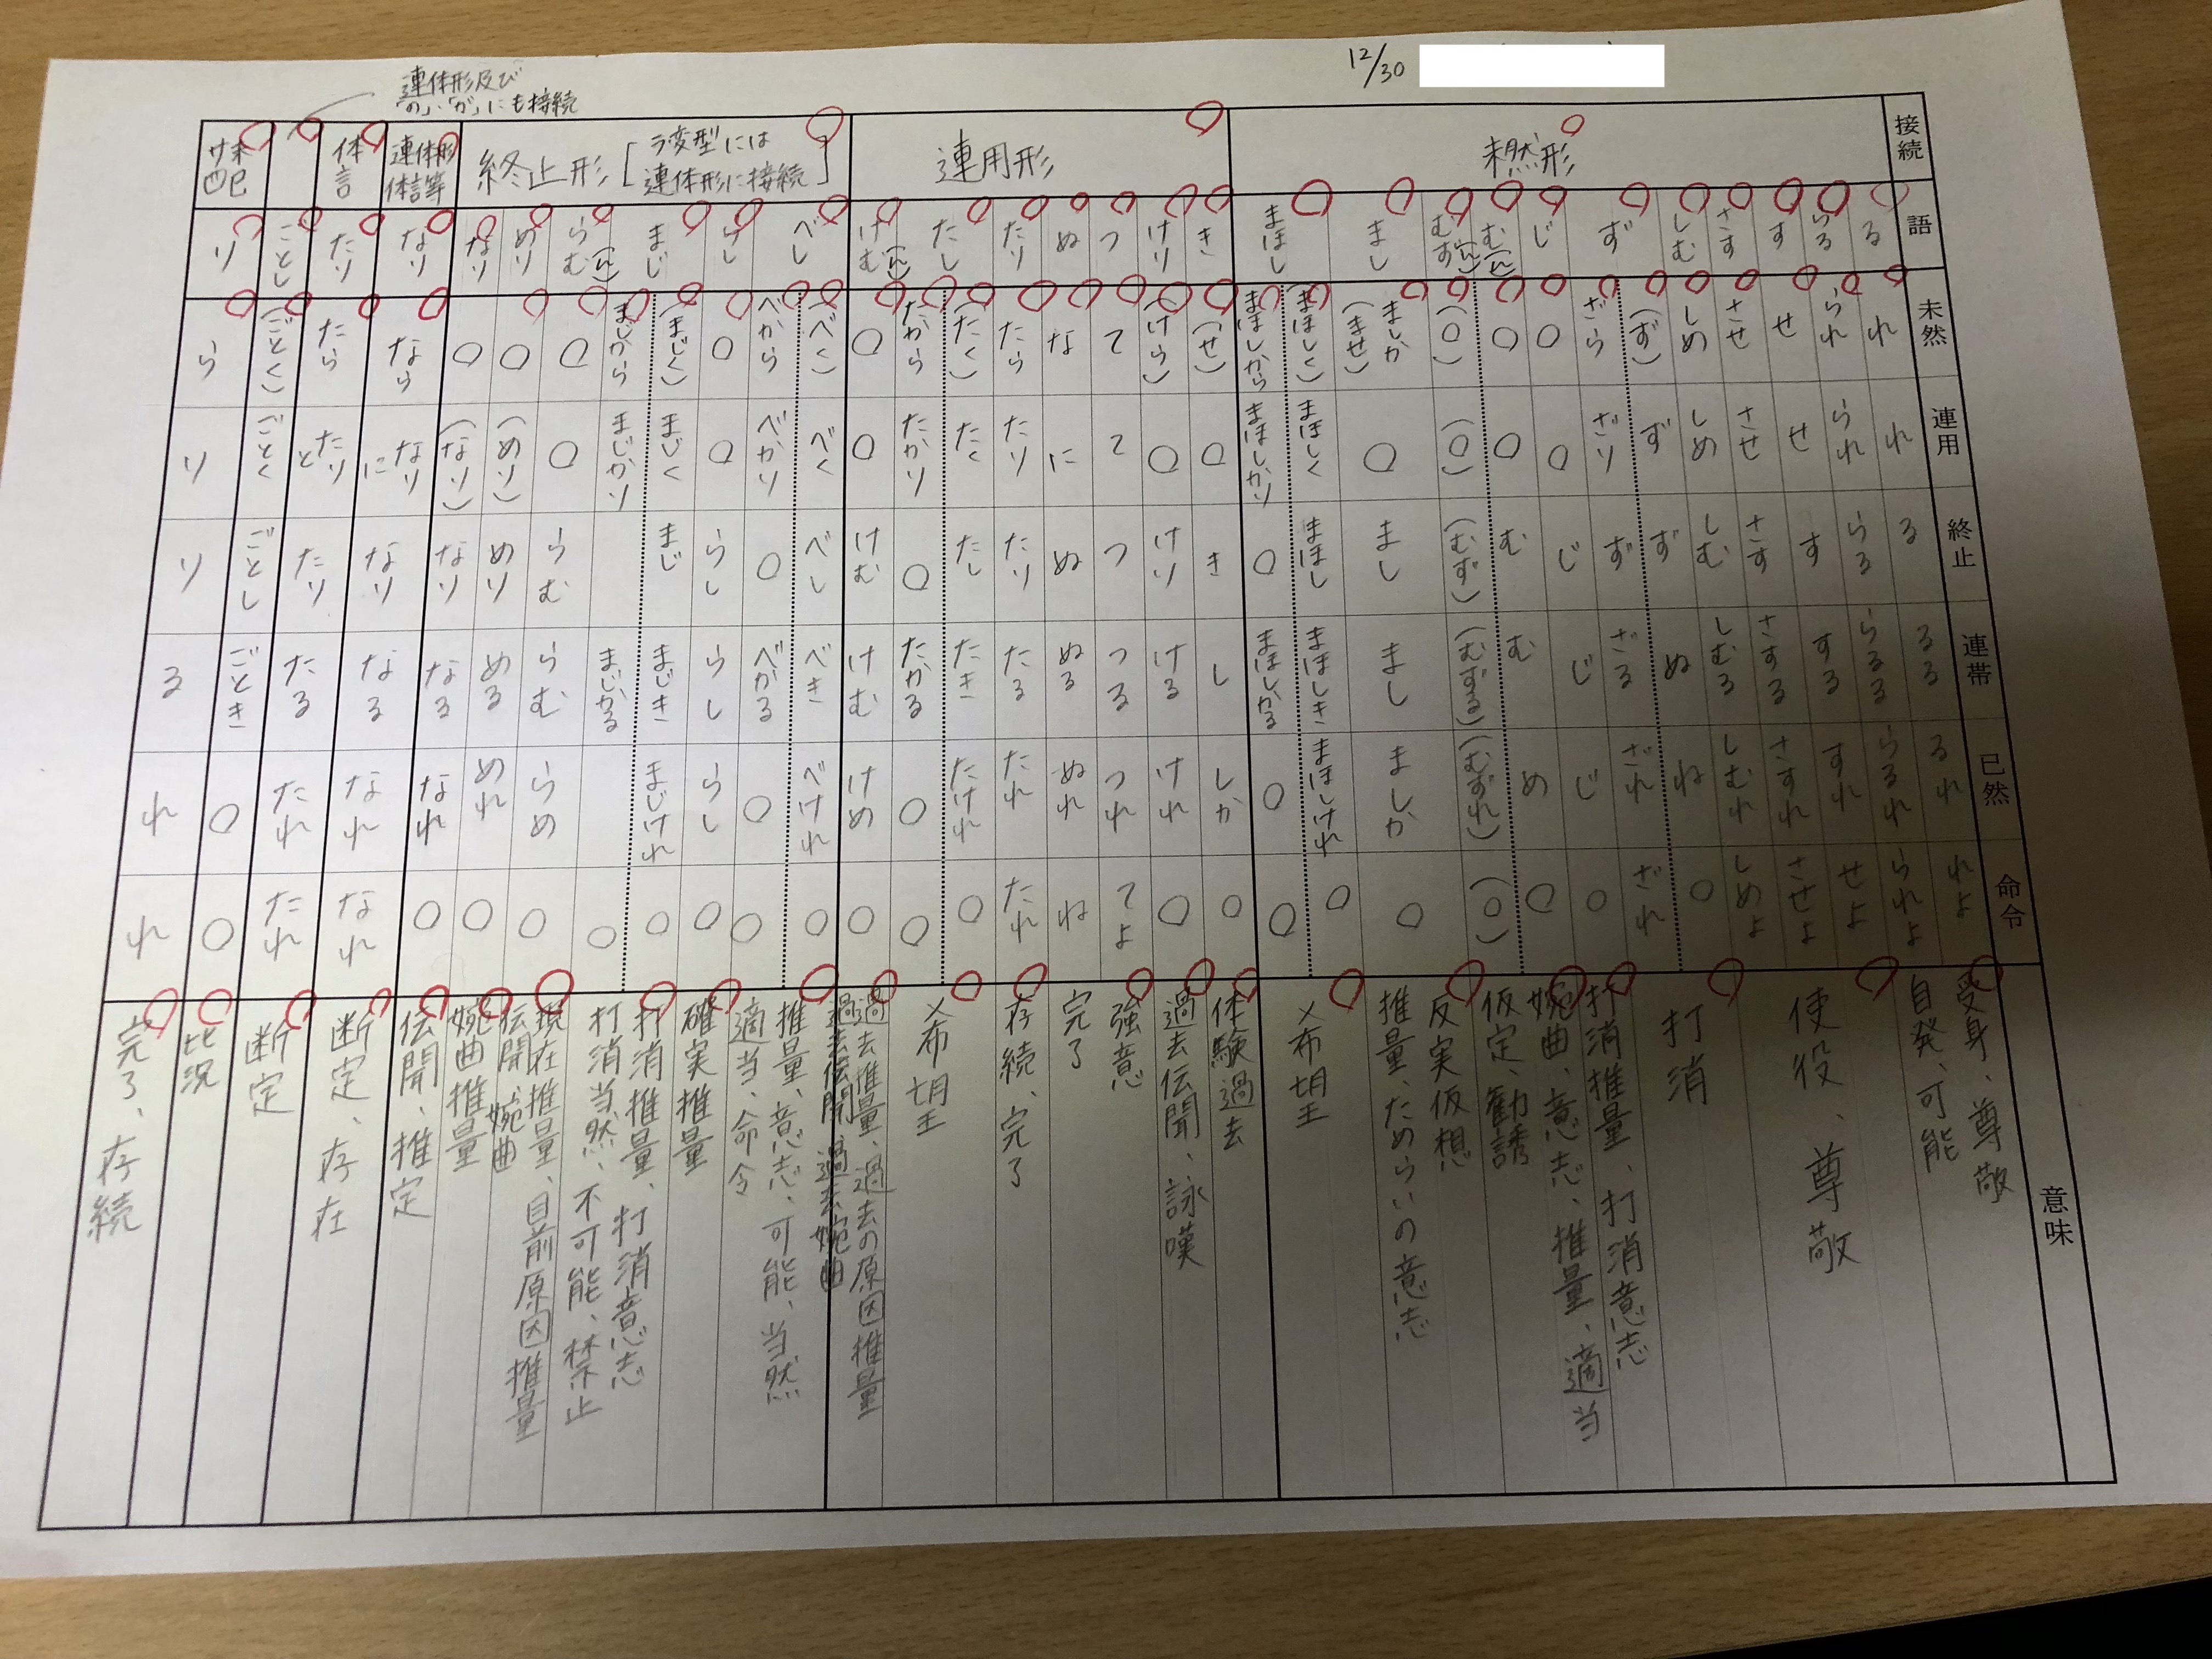 12/30
連体形及び
「の」「が」にも接続
接続
未然形
連用形
終止形[ラ変型には
連体形に接続]
連体形
体言等
体言
サ未
四已
語
る
らる
す
さす
しむ
ず
じ
む(ん)
むず(んず)
まし
まほし
き
けり
つ
ぬ
たり
たし
けむ(ん)
べし
まじ
らむ(ん)
めり
なり
なり
たり
ごとし
り
未然
れ
られ
せ
させ
しめ
(ず)
ざら
○
○
(○)
ましか
(ませ)
(まほしく)
まほしから
(せ)
(けら)
て
な
たら
(たく)
たから
○
(べく)
べから
○
(まじく)
まじから
○
○
○
なら
たら
(ごとく)
ら
連用
れ
られ
せ
させ
しめ
ず
ざり
○
○
(○)
○
まほしく
まほしかり
○
○
て
に
たり
たく
たかり
○
べく
べかり
○
まじく
まじかり
○
(めり)
(なり)
なり
に
たり
と
ごとく
り
終止
る
らる
す
さす
しむ
ず
ず
じ
む
(むず)
まし
まほし
○
き
けり
つ
ぬ
たり
たし
○
けむ
べし
○
らし
まじ
らむ
めり
なり
なり
たり
ごとし
り
連帯
るる
らるる
する
さする
しむる
ぬ
ざる
じ
む
(むずる)
まし
まほしき
まほしかる
し
ける
つる
ぬる
たる
たき
たかる
けむ
べき
べかる
らし
まじき
まじかる
らむ
める
なる
なる
たる
ごとき
る
已然
るれ
らるれ
すれ
さすれ
しむれ
ね
ざれ
じ
め
(むずれ)
ましか
まほしけれ
○
しか
けれ
つれ
ぬれ
たれ
たけれ
○
けめ
べけれ
○
らし
まじけれ
らめ
めれ
なれ
なれ
たれ
○
れ
命令
れよ
られよ
せよ
させよ
しめよ
○
ざれ
○
○
(○)
○
○
○
○
○
てよ
ね
たれ
○
○
○
○
○
○
○
○
○
○
○
なれ
たれ
○
れ
意味
受身、尊敬
自発、可能
使役、尊敬
打消
打消推量、打消意志
婉曲、意志、推量、適当
仮定、勧誘
反実仮想
推量、ためらいの意志
希望
体験過去
過去伝聞、詠嘆
強意
完了
存続、完了
希望
過去推量、過去の原因推量
過去伝聞、過去婉曲
推量、意志、可能、当然
適当、命令
確実推量
打消推量、打消意志
打消当然、不可能、禁止
現在推量、目前原因推量
伝聞、婉曲
婉曲推量
伝聞、推定
断定、存在
断定
比況
完了、存続